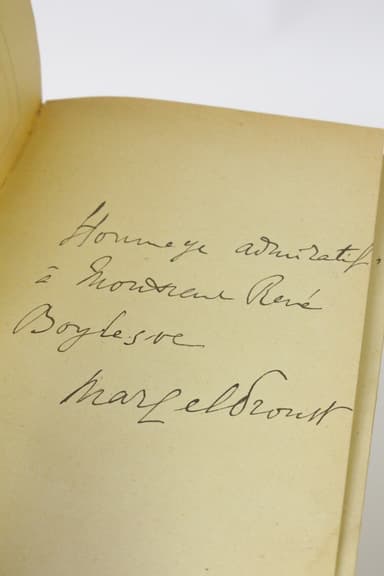 Hommage admiratif
à Monsieur René
Boylesve
Marcel Proust